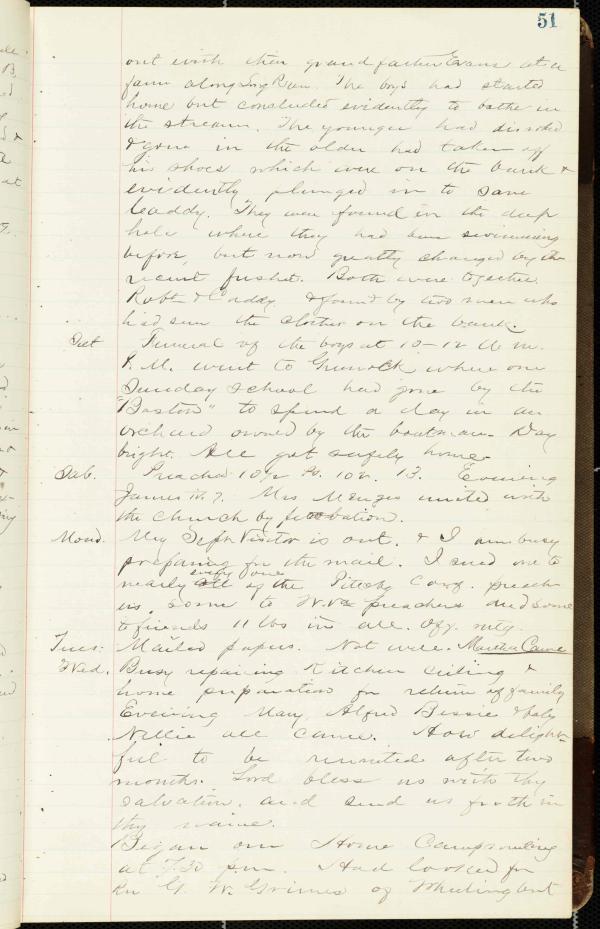 51
out with their grandfather Evans at a
farm along Long Run. The boys had started
home but concluded evidently to bathe in
the stream. The younger had disrobed
& gone in the older had taken off
his shoes which were on the bank &
evidently plunged in to save
Caddy. They were found in the deep
hole where they had been swimming
before, but now greatly changed by the
recent freshet. Both were together
Robt & Caddy & found by two men who
had seen the clothes on the bank.
Sat Funeral of the boys at 10-12 A. M.
P. M. went to Greenock where our
Sunday school had gone by the
"Boston" to spend a day in an
orchard owned by the boatman. Day
bright. All got safely home.
Sab. Preachd 10 1/2 13. Evening
James Mrs Menges united with
the church by probation.
Mond. My Visitor is out. & I am busy
preparing for the mail. I send one to
nearly all every one of the Pittsbg Conf. preach
ers some to W. Va preachers and some
to friends 11 lbs in all. Offl. mtg.
Tues: Mailed papers. Not well. Martha Came
Wed. Busy repairing Kitchen ceiling &
home preparation for return of family
Evening Mary, Alfred Bessie & baby
Nellie all came. How delight-
ful to be reunited after two
months. Lord bless us with thy
salvation, and send us forth in
thy name.
Began our Home Campmeeting
at 7.30 p.m. Had looked for
Rev G. W. Grimes of Wheeling but